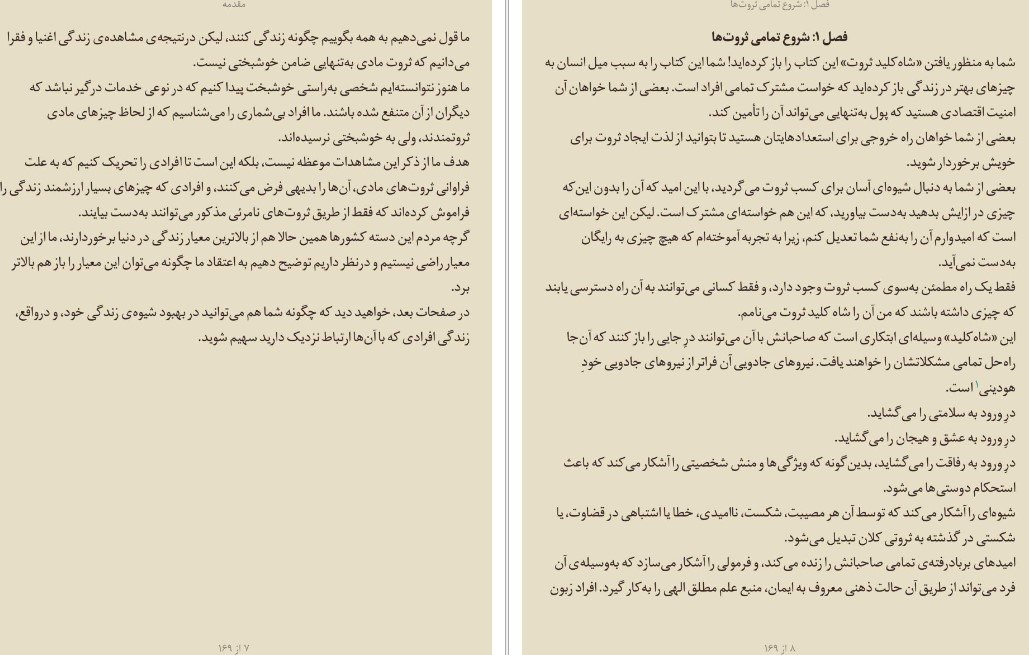 مقدمه
ما قول نمی‌دهیم به همه بگوییم چگونه زندگی کنند، لیکن درنتیجه‌ی مشاهده‌ی زندگی اغنیا و فقرا
می‌دانیم که ثروت مادی به‌تنهایی ضامن خوشبختی نیست.
ما هنوز نتوانسته‌ایم شخصی به‌راستی خوشبخت پیدا کنیم که در نوعی خدمات درگیر نباشد که
دیگران از آن متنفع شده باشند. ما افراد بی‌شماری را می‌شناسیم که از لحاظ چیزهای مادی
ثروتمندند، ولی به خوشبختی نرسیده‌اند.
هدف ما از ذکر این مشاهدات موعظه نیست، بلکه این است تا افرادی را تحریک کنیم که به علت
فراوانی ثروت‌های مادی، آن‌ها را بدیهی فرض می‌کنند، و افرادی که چیزهای بسیار ارزشمند زندگی را
فراموش کرده‌اند که فقط از طریق ثروت‌های نامرئی مذکور می‌توانند به‌دست بیایند.
گرچه مردم این دسته کشورها همین حالا هم از بالاترین معیار زندگی در دنیا برخوردارند، ما از این
معیار راضی نیستیم و درنظر داریم توضیح دهیم به اعتقاد ما چگونه می‌توان این معیار را باز هم بالاتر
برد.
در صفحات بعد، خواهید دید که چگونه شما هم می‌توانید در بهبود شیوه‌ی زندگی خود، و درواقع،
زندگی افرادی که با آن‌ها ارتباط نزدیک دارید سهیم شوید.
۷ از ۱۶۹
فصل ۱: شروع تمامی ثروت‌ها
فصل ۱: شروع تمامی ثروت‌ها
شما به منظور یافتن «شاه‌کلید ثروت» این کتاب را باز کرده‌اید! شما این کتاب را به سبب میل انسان به
چیزهای بهتر در زندگی باز کرده‌اید که خواست مشترک تمامی افراد است. بعضی از شما خواهان آن
امنیت اقتصادی هستید که پول به‌تنهایی می‌تواند آن را تأمین کند.
بعضی از شما خواهان راه خروجی برای استعدادهایتان هستید تا بتوانید از لذت ایجاد ثروت برای
خویش برخوردار شوید.
بعضی از شما به دنبال شیوه‌ای آسان برای کسب ثروت می‌گردید، با این امید که آن را بدون این‌که
چیزی در ازایش بدهید به‌دست بیاورید، که این هم خواسته‌ای مشترک است. لیکن این خواسته‌ای
است که امیدوارم آن را به‌نفع شما تعدیل کنم، زیرا به تجربه آموخته‌ام که هیچ چیزی به رایگان
به‌دست نمی‌آید.
فقط یک راه مطمئن به‌سوی کسب ثروت وجود دارد، و فقط کسانی می‌توانند به آن راه دسترسی یابند
که چیزی داشته باشند که من آن را شاه کلید ثروت می‌نامم.
این «شاه‌کلید» وسیله‌ای ابتکاری است که صاحبانش با آن می‌توانند درِ جایی را باز کنند که آن‌جا
راه‌حل تمامی مشکلاتشان را خواهند یافت. نیروهای جادویی آن فراتر از نیروهای جادویی خودِ
هودینی۱ است.
درِ ورود به سلامتی را می‌گشاید.
درِ ورود به عشق و هیجان را می‌گشاید.
درِ ورود به رفاقت را می‌گشاید، بدین‌گونه که ویژگی‌ها و منش شخصیتی را آشکار می‌کند که باعث
استحکام دوستی‌ها می‌شود.
شیوه‌ای را آشکار می‌کند که توسط آن هر مصیبت، شکست، ناامیدی، خطا یا اشتباهی در قضاوت، یا
شکستی در گذشته به ثروتی کلان تبدیل می‌شود.
امیدهای بربادرفته‌ی تمامی صاحبانش را زنده می‌کند، و فرمولی را آشکار می‌سازد که به‌وسیله‌ی آن
فرد می‌تواند از طریق آن حالت ذهنی معروف به ایمان، منبع علم مطلق الهی را به‌کار گیرد. افراد زبون
۸ از ۱۶۹